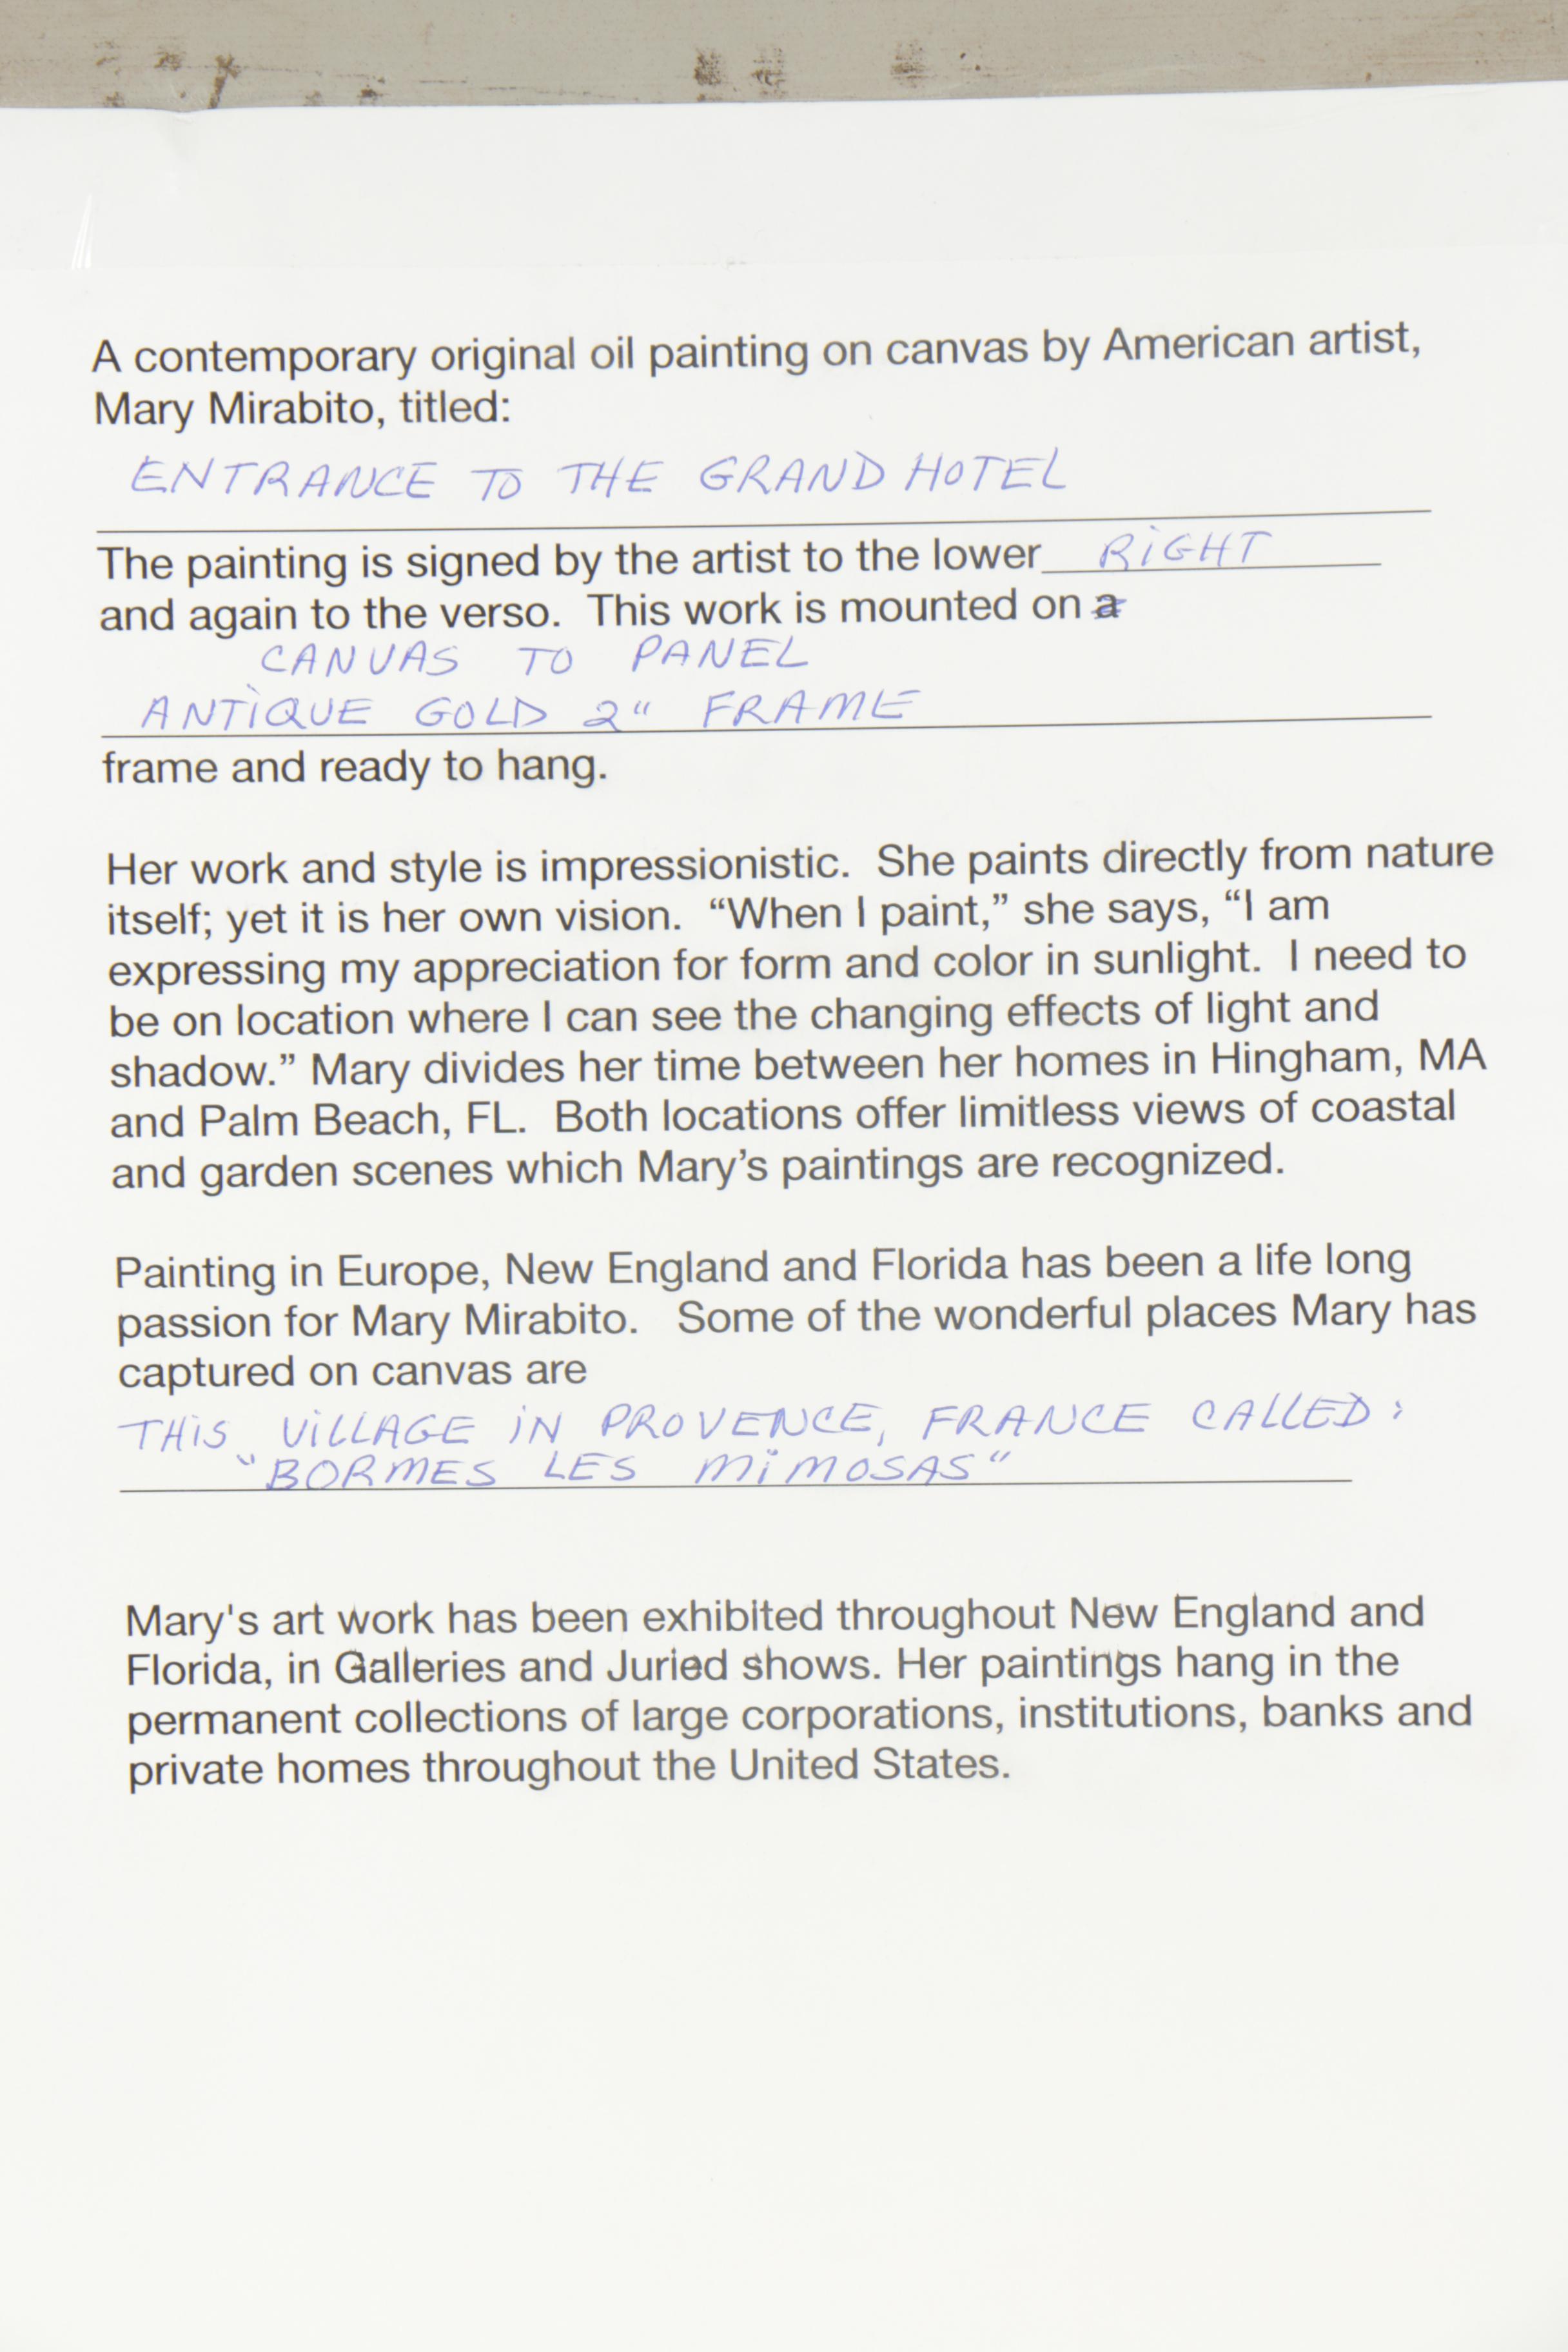 A contemporary original oil painting on canvas by American artist,
Mary Mirabito, titled:
ENTRANCE TO THE GRAND HOTEL
The painting is signed by the artist to the lower RIGHT
and again to the verso. This work is mounted on a
CANVAS TO PANEL
ANTIQUE GOLD 2" FRAME
frame and ready to hang.
Her work and style is impressionistic. She paints directly from nature
itself; yet it is her own vision. “When I paint,” she says, “I am
expressing my appreciation for form and color in sunlight. I need to
be on location where I can see the changing effects of light and
shadow.” Mary divides her time between her homes in Hingham, MA
and Palm Beach, FL. Both locations offer limitless views of coastal
and garden scenes which Mary’s paintings are recognized.
Painting in Europe, New England and Florida has been a life long
passion for Mary Mirabito. Some of the wonderful places Mary has
captured on canvas are
THIS VILLAGE IN PROVENCE, FRANCE CALLED:
"BORMES LES MIMOSAS"
Mary's art work has been exhibited throughout New England and
Florida, in Galleries and Juried shows. Her paintings hang in the
permanent collections of large corporations, institutions, banks and
private homes throughout the United States.